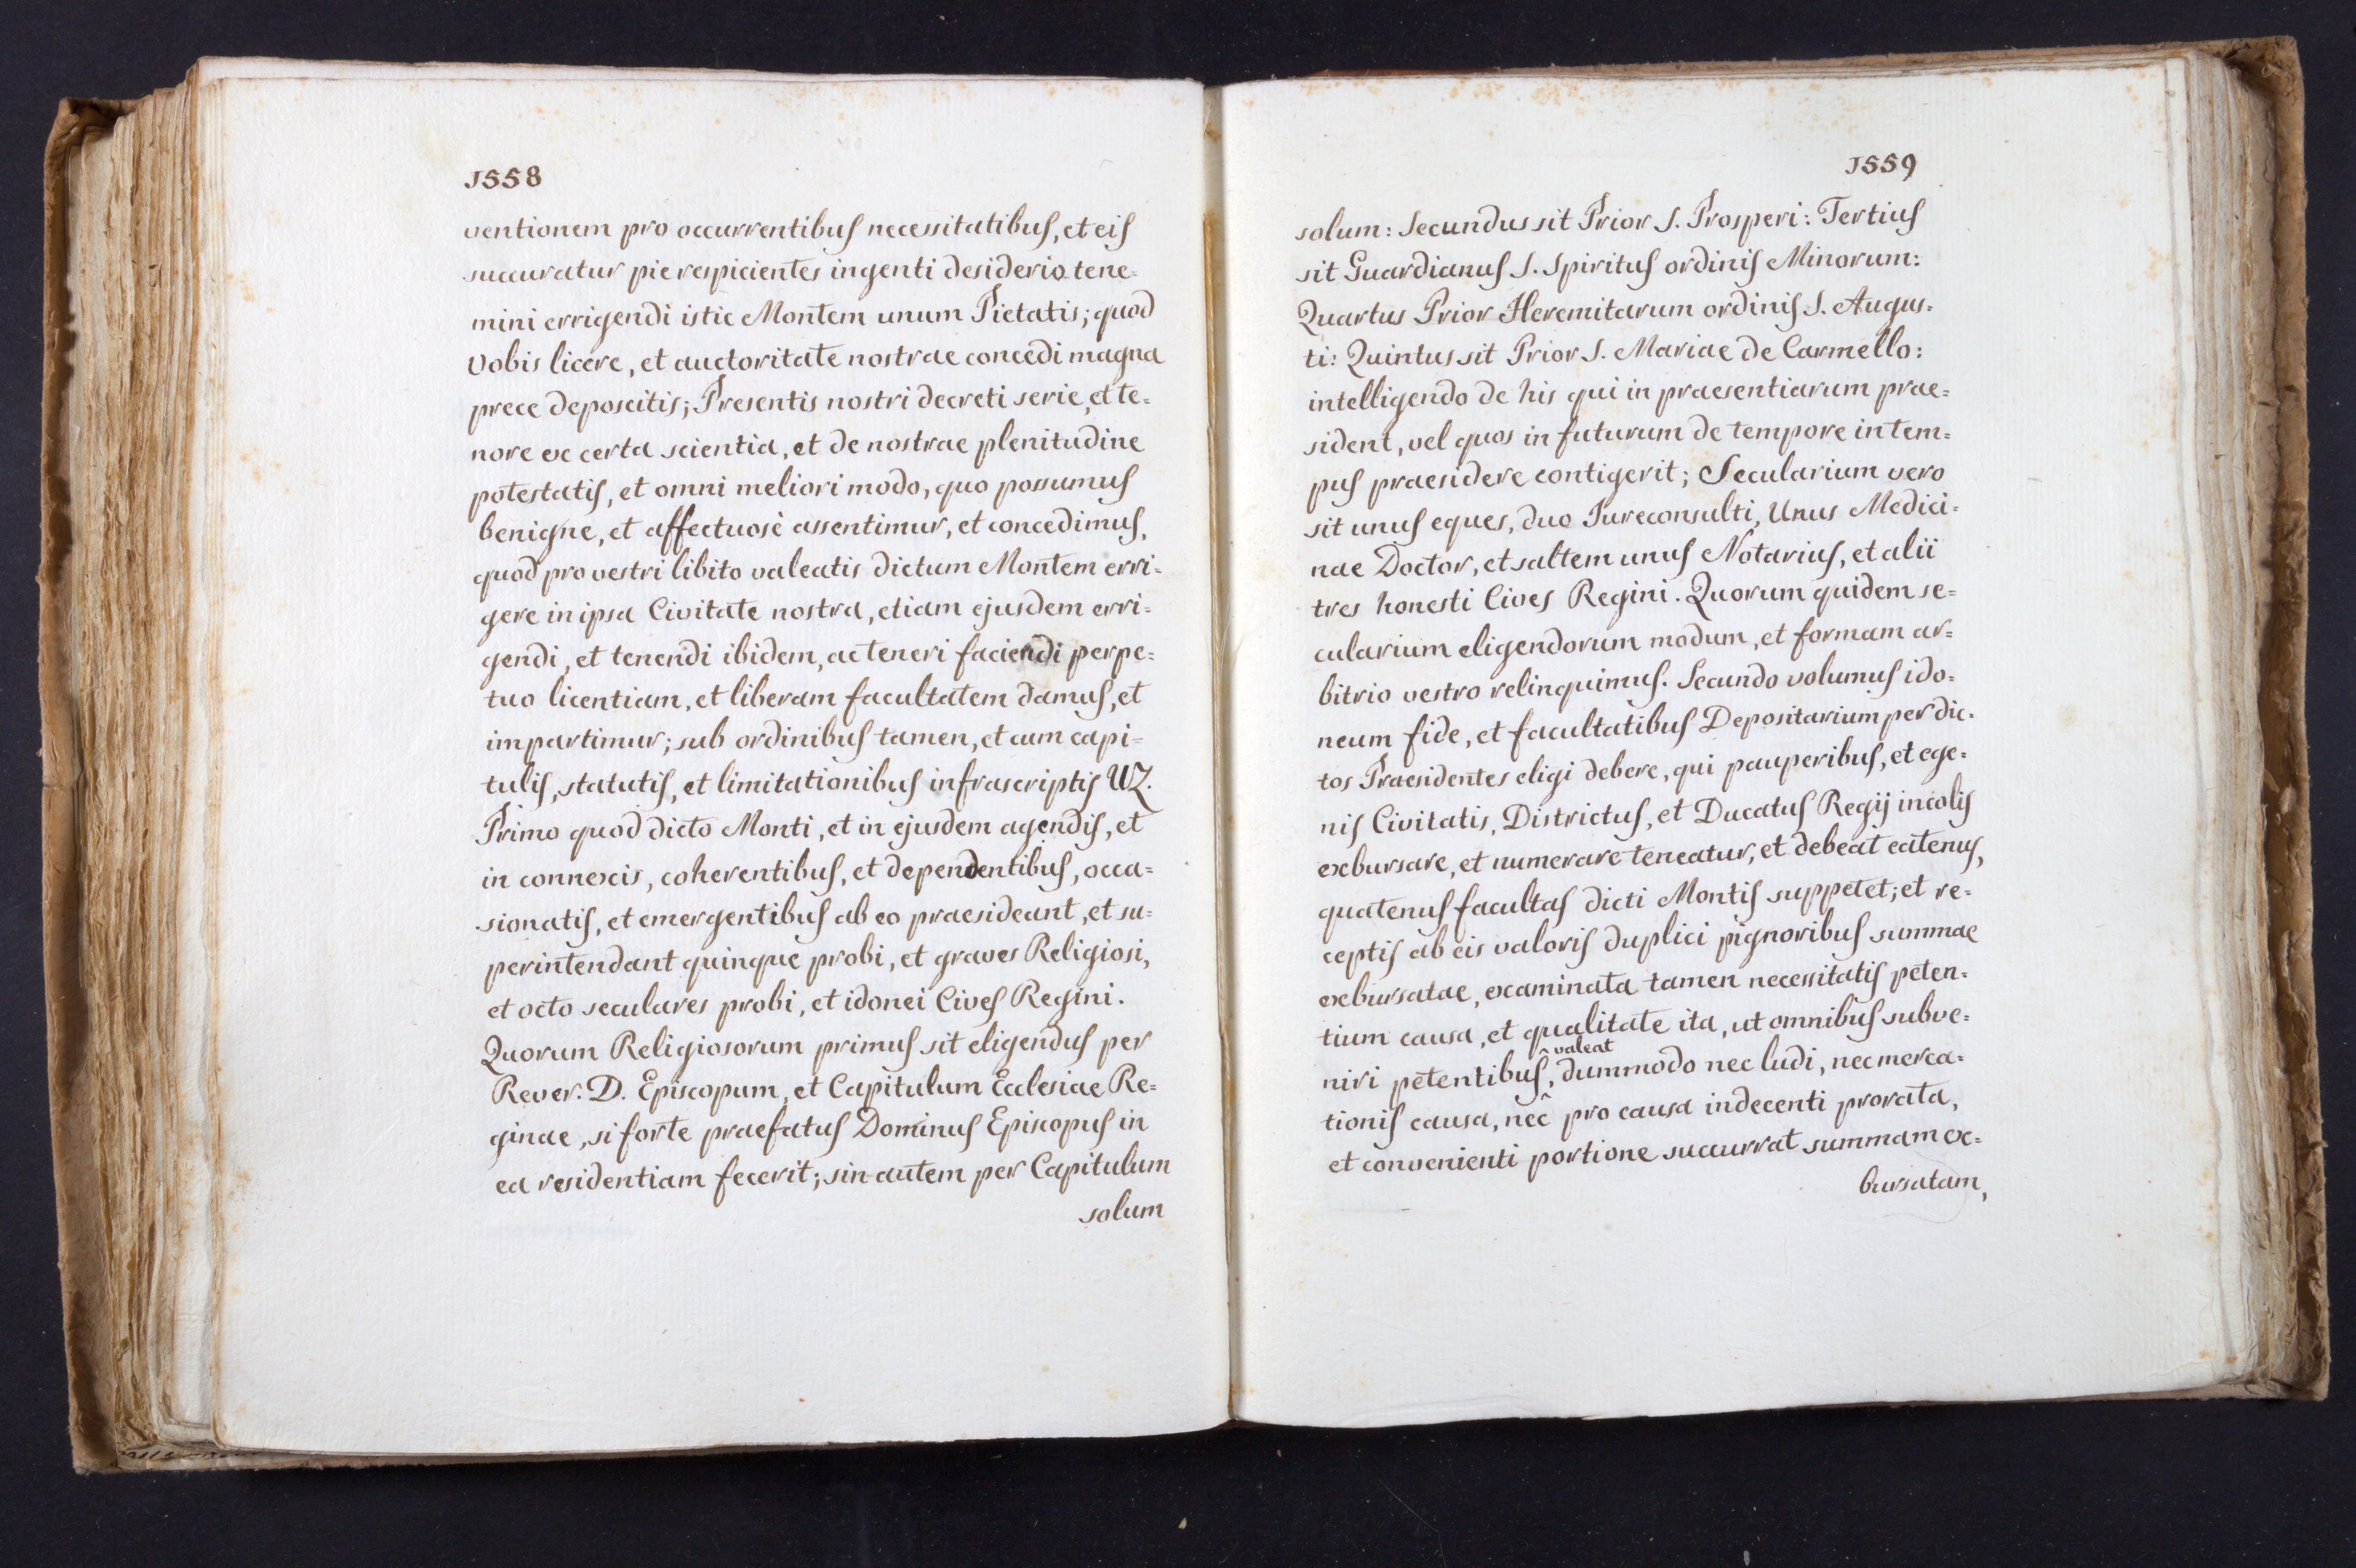 1558
ventionem pro occurrentibus necessitatibus, et eis
succuratur pie respicientes ingenti desiderio tene=
mini errigendi istic Montem unum Pietatis; quod
Vobis licere, et auctoritate nostrae concedi magna
prece deposcitis; Presentis nostri decreti serie, et te=
nore ex certa scientia, et de nostrae plenitudine
potestatis, et omni meliori modo, quo possumus
benigne, et affectuosè assentimur, et concedimus,
quod pro vestri libito valeatis dictum Montem erri=
gere in ipsa Civitate nostra, etiam ejusdem erri=
gendi, et tenendi ibidem, ac teneri faciendi perpe=
tuo licentiam, et liberam facultatem damus, et
impartimur; sub ordinibus tamen, et cum capi=
tulis, statutis, et limitationibus infrascriptis UZ.
Primo quod dicto Monti, et in ejusdem agendis, et
in connexis, coherentibus, et dependentibus, occa=
sionatis, et emergentibus ab eo praesideant, et su=
perintendant quinque probi, et graves Religiosi,
et octo seculares probi, et idonei Cives Regini.
Quorum Religiosorum primus sit eligendus per
Rever. D. Episcopum, et Capitulum Ecclesiae Re=
ginae, si forte praefatus Dominus Episcopus in
ea residentiam fecerit; sin autem per Capitulum
solum
1559
solum: Secundus sit Prior S. Prosperi: Tertius
sit Guardianus S. Spiritus ordinis Minorum:
Quartus Prior Heremitarum ordinis S. Augus=
ti: Quintus sit Prior S. Mariae de Carmello:
intelligendo de his qui in praesentiarum prae=
sident, vel quos in futurum de tempore in tem=
pus praesidere contigerit; Secularium vero
sit unus eques, duo Jureconsulti, Unus Medici=
nae Doctor, et saltem unus Notarius, et alii
tres honesti Cives Regini. Quorum quidem se=
cularium eligendorum modum, et formam ar=
bitrio vestro relinquimus. Secundo volumus ido=
neum fide, et facultatibus Depositarium per dic=
tos Praesidentes eligi debere, qui pauperibus, et ege=
nis Civitatis, Districtus, et Ducatus Regij incolis
exbursare, et numerare teneatur, et debeat eatenus,
quatenus facultas dicti Montis suppetet; et re=
ceptis ab eis valoris duplici pignoribus summae
exbursatae, examinata tamen necessitatis peten=
tium causa, et qualitate ita, ut omnibus subve=
niri petentibus^valeat, dummodo nec ludi, nec merca=
tionis causa, nec pro causa indecenti prorata,
et convenienti portione succurrat summam ex=
bursatam,